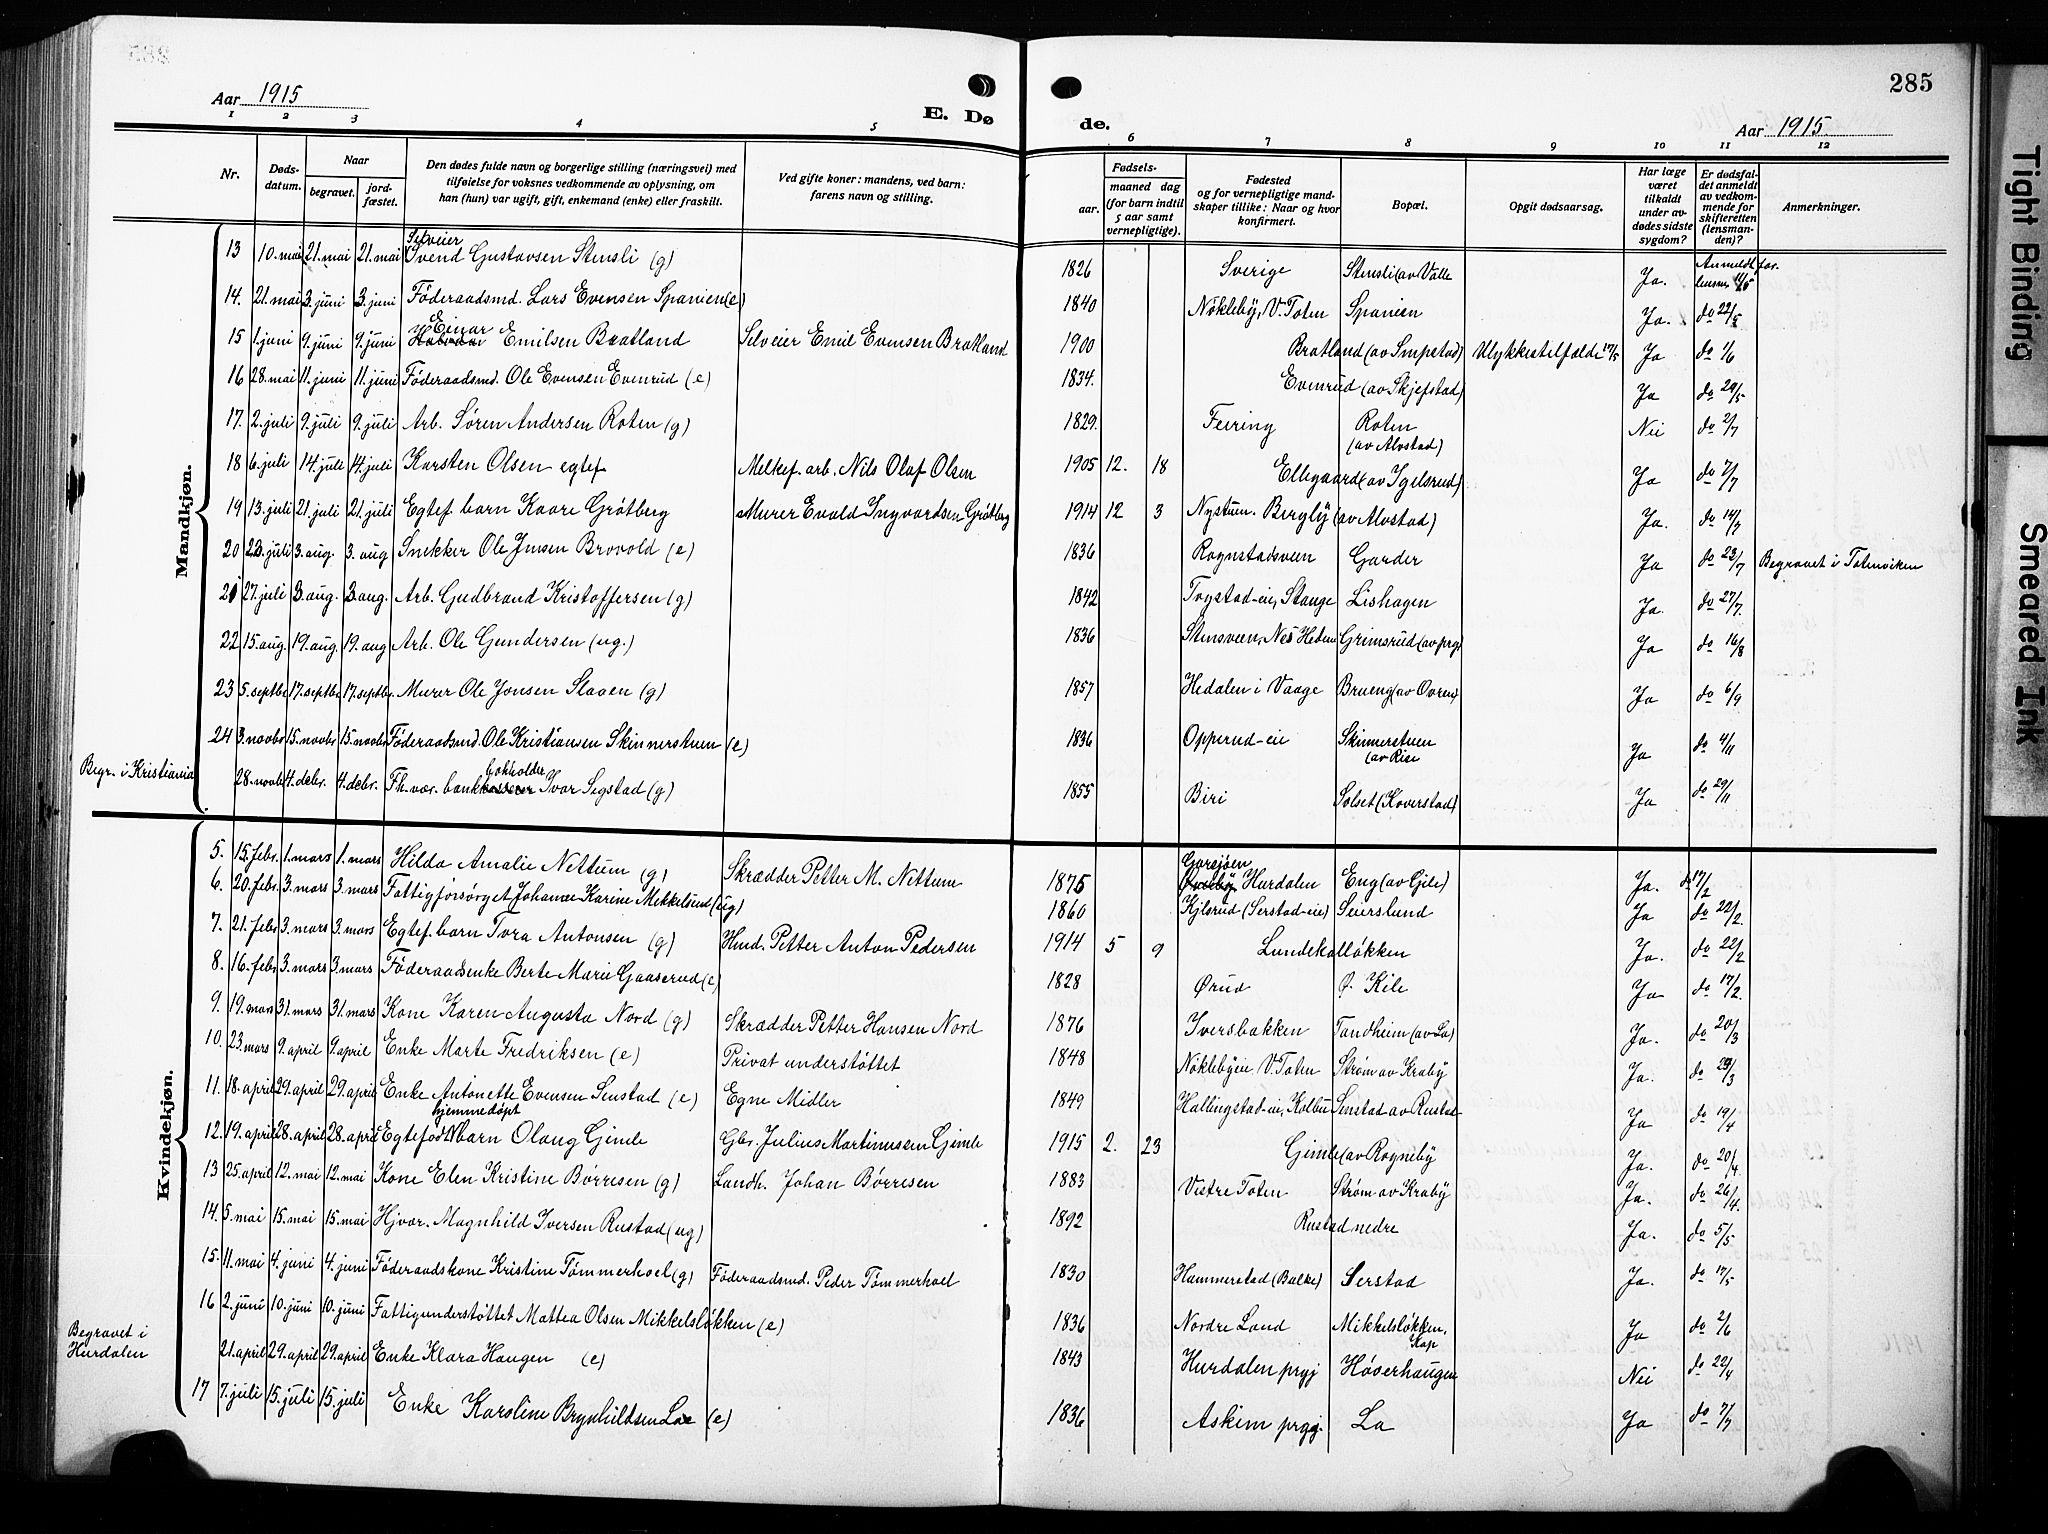 285
Aar 1915
E. Dø
de.
Aar 1915.
1 2 3 4 5 6 7 8 9 10 11 12
Nr.
Døds-datum.
Naar
begravet.
jord-fæstet.
Den dødes fulde navn og borgerlige stilling (næringsvei) med tilføielse for voksnes vedkommende av oplysning, om han (hun) var ugift, gift, enkemand (enke) eller fraskilt.
Ved gifte koner: mandens, ved barn: farens navn og stilling.
Fødsels-
aar.
maaned dag
(for barn indtil 5 aar samt vernepligtige).
Fødested og for vernepligtige mandskaper tillike: Naar og hvor konfirmert.
Bopæl.
Opgit dødsaarsag.
Har læge været tilkaldt under avdødes sidste sygdom?
Er dødsfaldet anmeldt av vedkommende for skifteretten (lensmanden)?
Anmerkninger.
Mandkjøn.
13 10. mai 21. mai 21. mai Selveier Svend Gustavsen Stensli (g) 1826 Sverige Stensli (av Valle Ja. Anmeldt for. lensm. 11/5
14. 21. mai 3. juni 3. juni Föderaadsmd. Lars Evensen Spanien (e) 1840 Nökleby, V. Toten Spanien Ja. do 22/5
15 1. juni 9. juni 9. juni Einar Emilsen Bratland Selveier Emil Evensen Bratland 1900 Bratland (av Smpstad) Ulykkestilfælde 17/5 Ja do 1/6
16 28. mai 11. juni 11. juni Föderaadsmd. Ole Evensen Evenrud (e) 1834. Evenrud (av Skjefstad) Ja do 29/5
17. 2. juli 9. juli 9. juli Arb. Søren Andersen Roten (g) 1829. Feiring Roten (av Alvstad) Nei do 2/7
18 6. juli 14. juli 14. juli Karsten Olsen egtef Melkef. arb. Nils Olaf Olsen 1905 12. 18 Ellegaard (av Igelsrud) Ja do 7/7
19 13. juli 21. juli 21. juli Egtef. barn Kaare Grøtberg Murer Evald Ingvardsen Grøtberg 1914 12 3 Nystuen. Bergly (av Alvstad) Ja. do 14/7
20 23. juli 3. aug. 3. aug Snekker Ole Jensen Brovold (e) 1836 Rognstadsveen Garder Ja do 23/7 Begravet i Totenviken
21 27. juli 3. aug. 3. aug. Arb. Gudbrand Kristoffersen (g) 1842 Trystad-eie, Stange Lishagen Ja. do 27/7.
22 15. aug. 19. aug. 19. aug Arb. Ole Gundersen (ug.) 1836 Stensveen, Nes Hedm Grimsrud (av prg) Ja do 16/8
23 5. septbr 17. septbr 17. septbr. Murer Ole Jonsen Slaaen (g) 1857 Hedalen i Vaage Brueng (av Ovren) Ja do 6/9
24 3. novbr 15. novbr 15. novbr Föderaadsmd. Ole Kristiansen Skinnerstuen (e) 1836 Opperud-eie Skinnerstuen (av Rise Ja do 4/11
Begr. i Kristiania 28. novbr 4. debr. 4. debr. Fh. vær. bankbokholder Ivar Segstad (g) 1855 Biri Solset (Koverstad) Ja do 29/11
Kvindekjøn.
5. 15. febr. 1. mars 1. mars Hilda Amalie Nettum (g) Skrædder Petter M. Nettum 1875 Garsjøen Hurdalen Eng (av Gjile) Ja. do 17/2
6. 20. febr. 3. mars 3. mars Fattigforsørget Johanne Karine Mikkelsen (ug) 1860 Kjlsrud (Serstad-eie) Seierslund Ja do 22/2.
7. 21. febr 3. mars 3. mars Egtef. barn Tora Antonsen (g) Hmd. Petter Anton Pedersen 1914 5 9 Lundekalløkken Ja. do 22/2
8. 16. febr 3. mars 3. mars Föderaadsenke Berte Marie Gaaserud (e) 1828 Ørud Ø. Kile Ja do 17/2.
9. 19. mars 31. mars 31. mars Kone Karen Augusta Nord (g) Skrædder Petter Hansen Nord 1876 Iversbakken Tandheim (av La) Ja. do 20/3
10. 23. mars 9. april 9. april Enke Marte Fredriksen (e) Privat understøttet 1848 Nöklebyen V. Toten Strøm av Kraby Ja. do 23/3
11. 18. april 29. april 29. april Enke Antonette Evensen Senstad (e) Egne Midler 1849 Hallingstad-eie, Kolbu Senstad av Rustad Ja do 19/4
12. 19. april 28. april 28. april Egtefødt hjemmedöpt barn Olaug Gimle Gbr. Julius Martinussen Gimle 1915 2. 23 Gimle (av Rogneby Ja. do 20/4
13 25. april 12. mai 12. mai Kone Elen Kristine Børresen (g) Landh. Johan Børresen 1883 Vestre Toten Strøm av Kraby Ja. do 26/4.
14. 5. mai 15. mai 15. mai Hjvær. Magnhild Iversen Rustad (ug) 1892 Rustad nedre Ja. do 5/5
15. 11. mai 4. juni 4. juni Föderaadskone Kristine Tømmerhoel (g) Föderaadsmd. Peder Tømmerhoel 1830 Hammerstad (Balke) Serstad Ja. do 17/5
16 2. juni 10. juni 10. juni Fattigunderstøttet Mattea Olsen Mikkelsløkken (e) 1836 Nordre Land Mikkelsløkken, Kap Ja do 2/6
Begravet i Hurdalen 21. april 29. april 29. april Enke Klara Haugen (e) 1843 Hurdalen prgj Høverhaugen Nei do 22/4
17 7. juli 15. juli 15. juli Enke Karoline Brynhildsen Lae (e) 1836 Askim prgj. La Ja do 7/7
Tight Binding
Smeared Ink